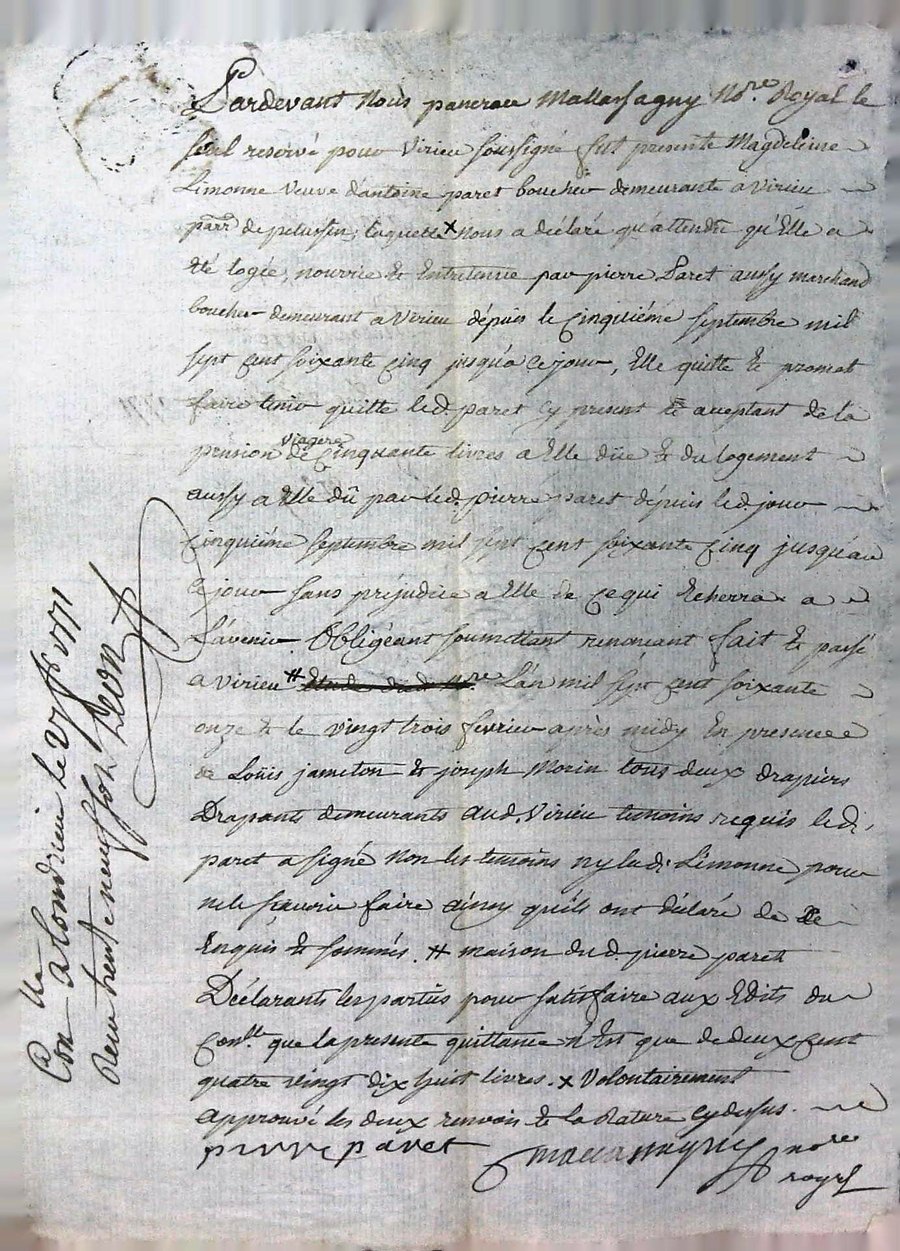 Pardevant Nous pancrace Mallassagny No.re Royal le
seul reservé pour Virieu soussigné fut presente Magdeleine
Limonne Veuve d'antoine paret boucher demeurante a Virieu
parr.e de pelussin, laquelle x nous a déclaré qu'attendu qu'Elle a
été logée, nourrie et Entretenue par pierre Paret aussy marchand
boucher demeurant a Virieu depuis le cinquiéme septembre mil
sept cent soixante cinq jusqu'a ce jour, Elle quitte et promet
faire tenir quitte led. paret cy present et acceptant de la
pension viagere de cinquante livres a Elle düe et du logement
aussy a Elle dû par led. pierre paret depuis led. jour
cinquiéme septembre mil sept cent soixante cinq jusqu'au
ce jour sans prejudice a Elle de ce qui Echerra a
L'avenir. Obligeant soumettant renonçant fait et passé
a Virieu # L'an mil sept cent soixante
onze et le vingt trois fevrier après midy En presence
de Louis jameton et joseph Morin tous deux drapiers
Drapants demeurants aud. Virieu temoins requis led.
paret a signé non les temoins ny lad. Limonne pour
ne le sçavoir faire ainsy qu'ils ont déclaré de ce
Enquis et sommés. # maison dud. pierre paret
Déclarants les parties pour satisfaire aux Edits du
Con.lle que la presente quittance n'Est que de deux cent
quatre vingt dix huit livres. x Volontairement
approuvé les deux renvois et la Rature cy dessus.
pierre paret Mallassagny no.re
royal
Con.lle a Condrieu le 27 f.r 1771
Receu trente neuf sols Leon